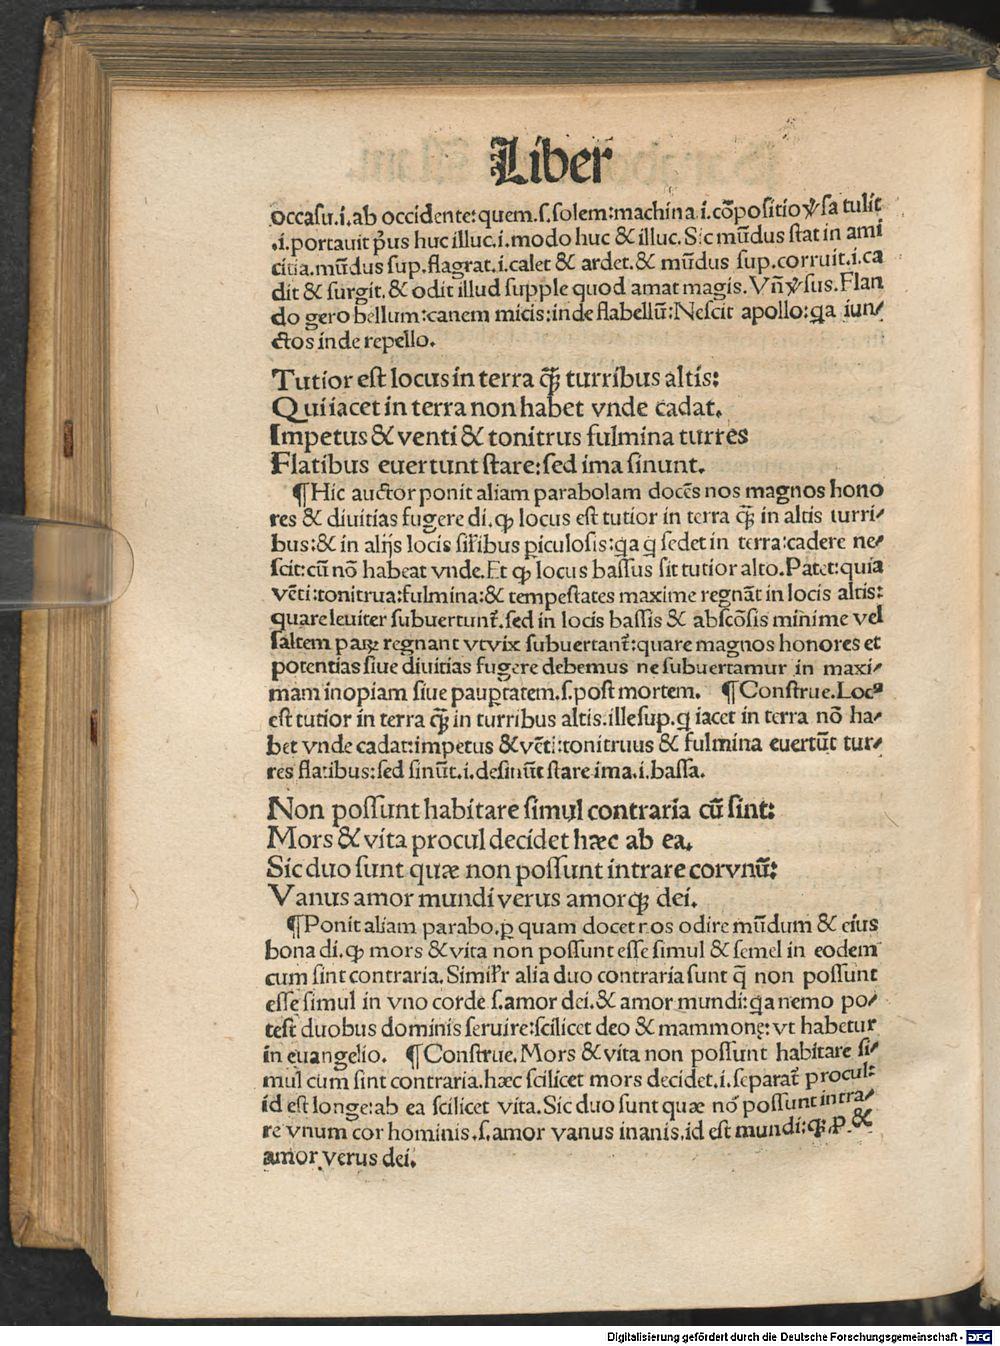 Liber
occasu.i.ab occidente:quem.s.solem:machina.i.cõpositio ꝟsa tulit
.i.portauit p̃us huc illuc.i.modo huc & illuc.Sic mũdus stat in ami
citia.mũdus sup.flagrat.i.calet & ardet.& mũdus sup.corruit.i.ca
dit & surgit.& odit illud supple quod amat magis.Vñ ꝟsus.Flan
do gero bellum:canem micis:inde flabellũ:Nescit apollo:q̃a iun/
ctos inde repello.
Tutior est locus in terra q̃ꝫ turribus altis:
Qui iacet in terra non habet vnde cadat.
Impetus & venti & tonitrus fulmina turres
Flatibus euertunt stare:sed ima sinunt.
¶Hic auctor ponit aliam parabolam docẽs nos magnos hono
res & diuitias fugere di.ꝙ locus est tutior in terra q̃ꝫ in altis turri/
bus:& in alijs locis sil̃ibus ꝑiculosis:q̃a q̃ sedet in terra:cadere ne/
scit:cũ nõ habeat vnde.Et ꝙ locus bassus sit tutior alto.Patet:quia
vẽti:tonitrua:fulmina:& tempestates maxime regnãt in locis altis:
quare leuiter subuertunt᷑.sed in locis bassis & abscõsis minime vel
saltem paꝝ regnant vt vix subuertant᷑:quare magnos honores et
potentias siue diuitias fugere debemus ne subuertamur in maxi/
mam inopiam siue pauꝑtatem.s.post mortem. ¶Construe.Locꝰ
est tutior in terra q̃ꝫ in turribus altis.ille sup.q̃ iacet in terra nõ ha/
bet vnde cadat:impetus & vẽti:tonitruus & fulmina euertũt tur/
res flatibus:sed sinũt.i.desinũt stare ima.i.bassa.
Non possunt habitare simul contraria cũ sint:
Mors & vita procul decidet hæc ab ea.
Sic duo sunt quæ non possunt intrare cor vnũ:
Vanus amor mundi verus amorqꝫ dei.
¶Ponit aliam parabo.ꝑ quam docet nos odire mũdum & eius
bona di.ꝙ mors & vita non possunt esse simul & semel in eodem
cum sint contraria.Simil̃r alia duo contraria sunt q̃ non possunt
esse simul in vno corde s.amor dei.& amor mundi:q̃a nemo po/
test duobus dominis seruire:scilicet deo & mammonę:vt habetur
in euangelio. ¶Construe.Mors & vita non possunt habitare si/
mul cum sint contraria.hæc scilicet mors decidet.i.separat᷑ procul:
id est longe:ab ea scilicet vita.Sic duo sunt quæ nõ possunt intra/
re vnum cor hominis.s.amor vanus inanis.id est mundi:qꝫ.p.&
amor verus dei.
Digitalisierung gefördert durch die Deutsche Forschungsgemeinschaft - DFG